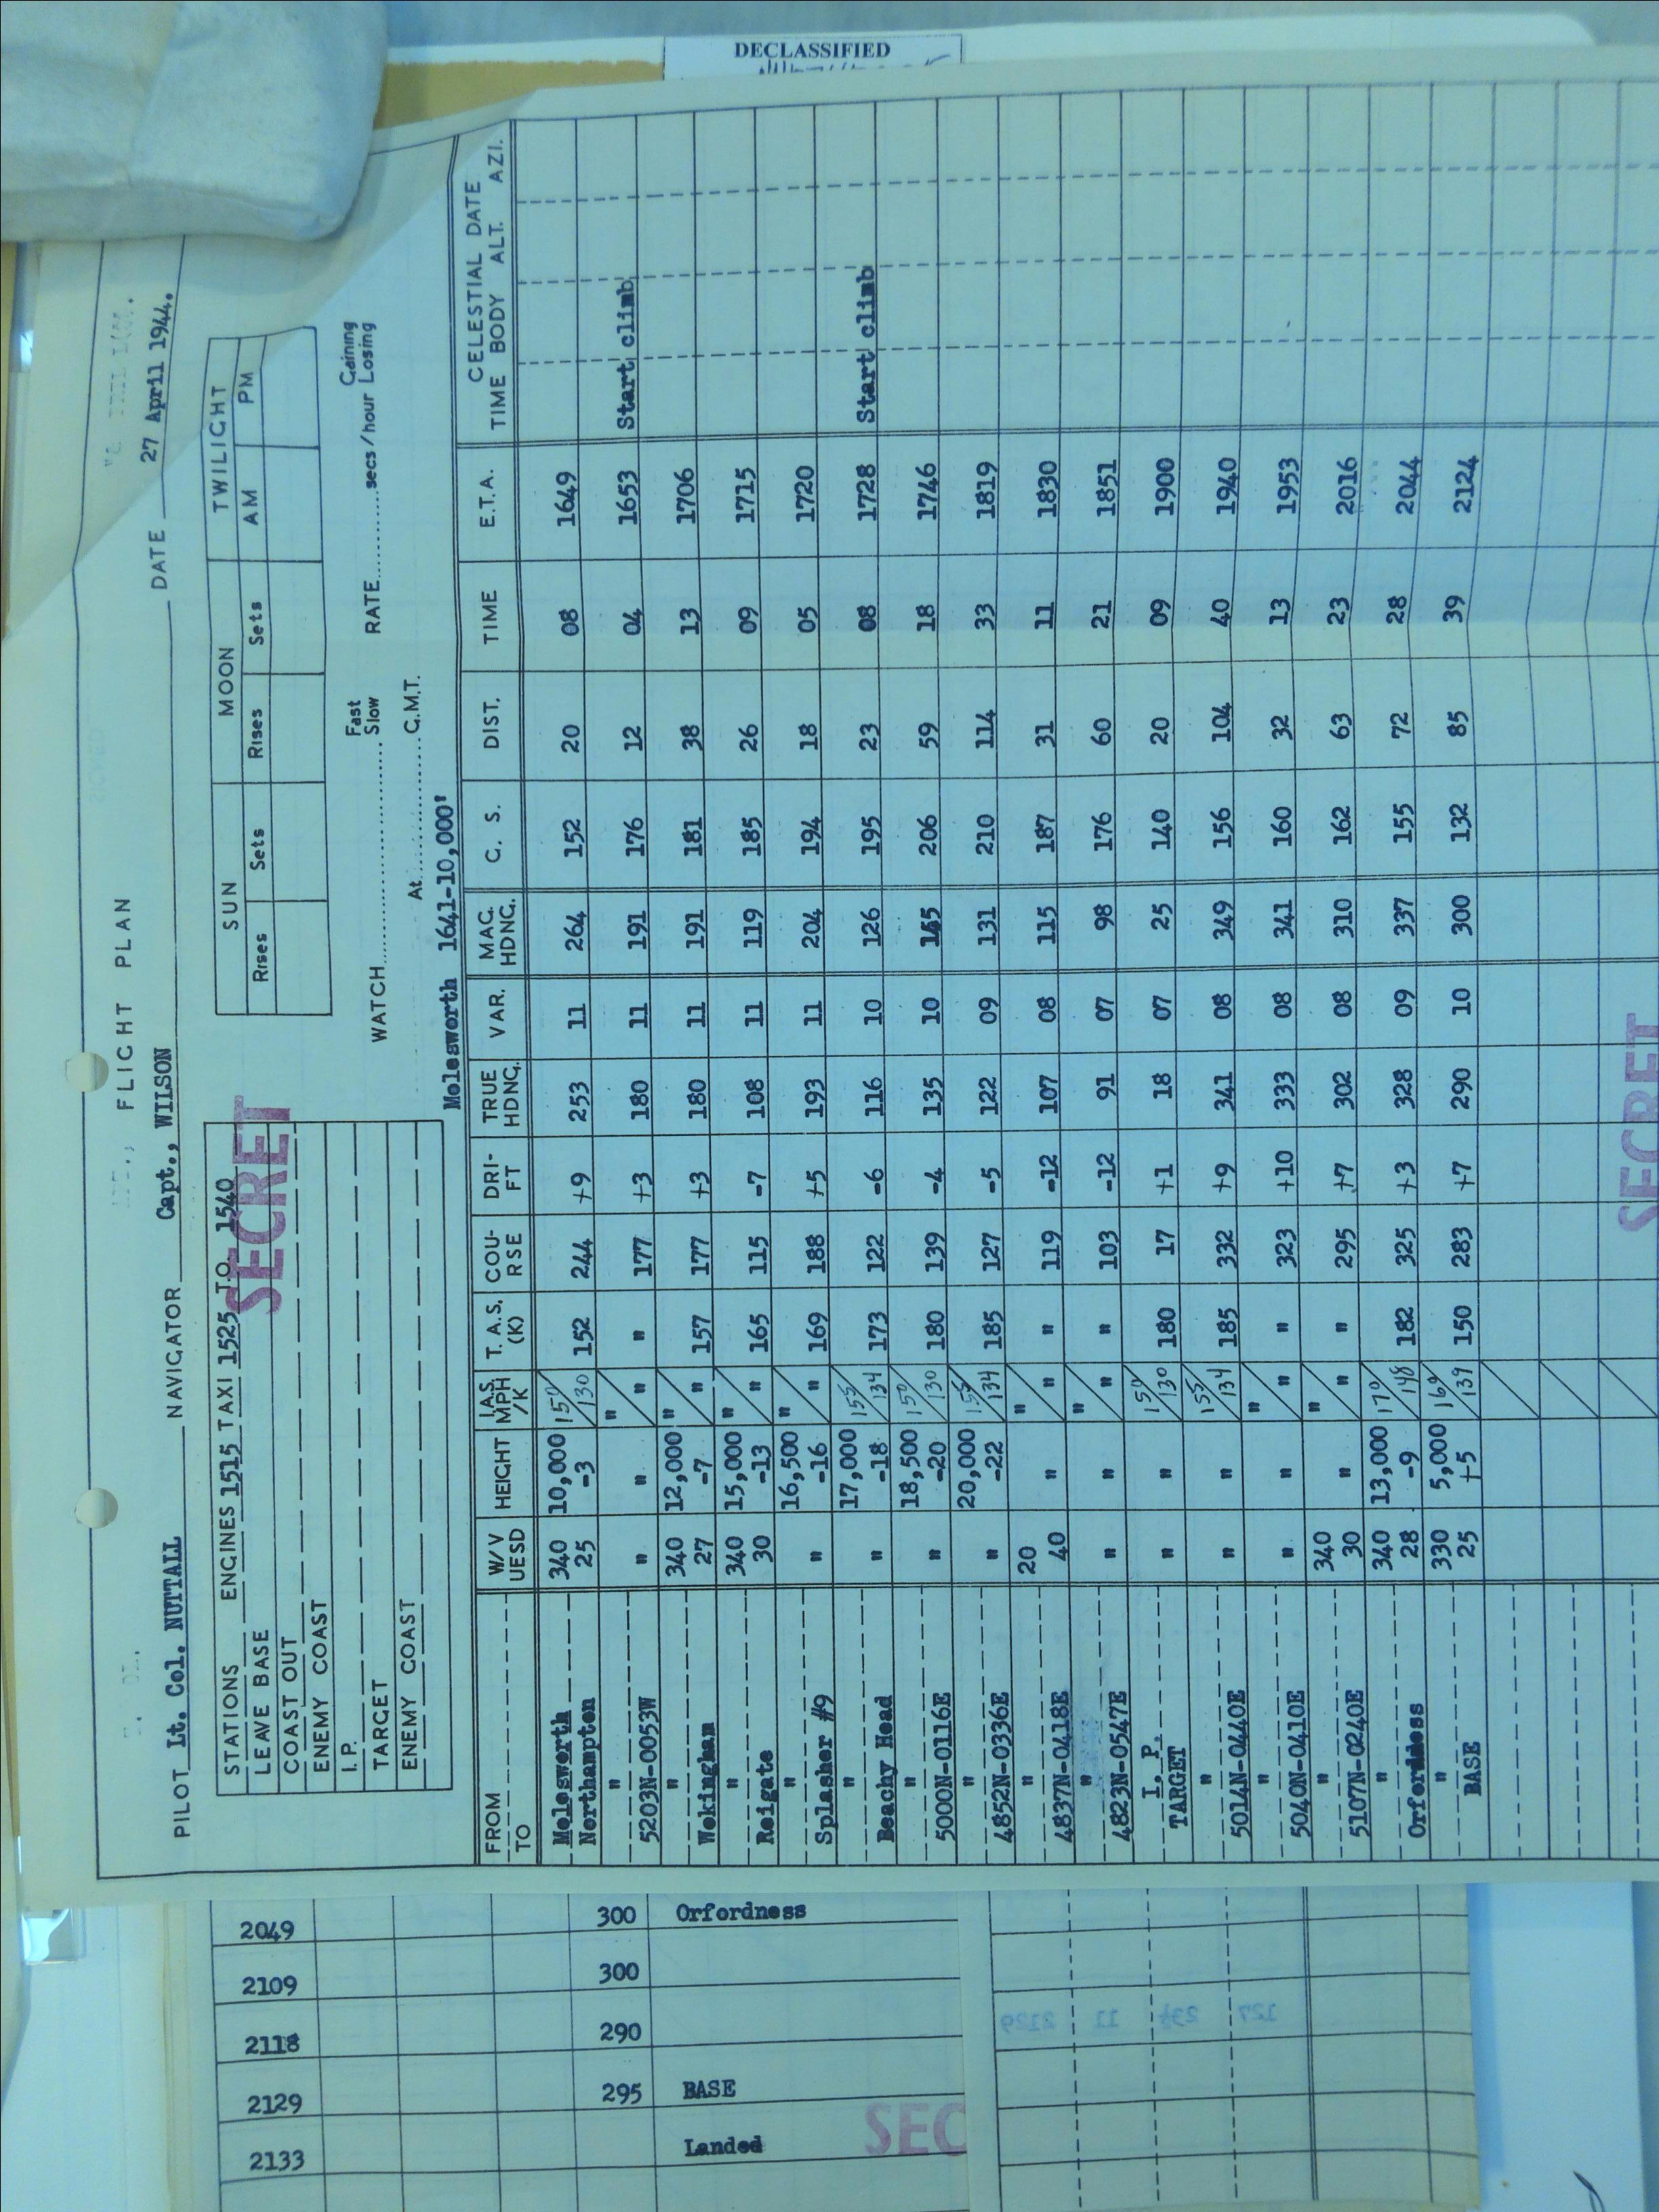 DECLASSIFIED
FLIGHT PLAN
PILOT Lt. Col. NUTTALL NAVIGATOR Capt., WILSON DATE 27 April 1944.
STATIONS ENGINES 1515 TAXI 1525 T.O. 1540
LEAVE BASE
COAST OUT
ENEMY COAST
I.P.
TARGET
ENEMY COAST
SECRET
SUN MOON TWILIGHT
Rises Sets Rises Sets AM PM
WATCH Fast Slow RATE secs/hour Gaining Losing
At G.M.T.
Molesworth 1641-10,000'
FROM TO W/V UESD HEIGHT I.A.S. MPH /K T.A.S. (K) COU-RSE DRI-FT TRUE HDNG. VAR. MAG. HDNG. G. S. DIST. TIME E.T.A. CELESTIAL DATE TIME BODY ALT. AZI.
Molesworth Northampton 340 25 10,000 -3 150/130 152 244 +9 253 11 264 152 20 08 1649
" 5203N-0053W " " "/" " 177 +3 180 11 191 176 12 04 1653 Start climb
" Wokingham 340 27 12,000 -7 "/" 157 177 +3 180 11 191 181 38 13 1706
" Reigate 340 30 15,000 -13 "/" 165 115 -7 108 11 119 185 26 09 1715
" Splasher #9 " 16,500 -16 "/" 169 188 +5 193 11 204 194 18 05 1720
" Beachy Head " 17,000 -18 155/134 173 122 -6 116 10 126 195 23 08 1728 Start climb
" 5000N-0116E " 18,500 -20 150/130 180 139 -4 135 10 145 206 59 18 1746
" 4852N-0336E " 20,000 -22 155/134 185 127 -5 122 09 131 210 114 33 1819
" 4837N-0418E 20 40 " "/" " 119 -12 107 08 115 187 31 11 1830
" 4823N-0547E " " "/" " 103 -12 91 07 98 176 60 21 1851
I.P. TARGET " " 150/130 180 17 +1 18 07 25 140 20 09 1900
" 5014N-0440E " " 155/134 185 332 +9 341 08 349 156 104 40 1940
" 5040N-0410E " " "/" " 323 +10 333 08 341 160 32 13 1953
" 5107N-0240E 340 30 " "/" " 295 +7 302 08 310 162 63 23 2016
" Orfordness 340 28 13,000 -9 170/148 182 325 +3 328 09 337 155 72 28 2044
" BASE 330 25 5,000 +5 160/139 150 283 +7 290 10 300 132 85 39 2124
SECRET
2049 300 Orfordness
2109 300
2118 290
2129 295 BASE
2133 Landed
SEC